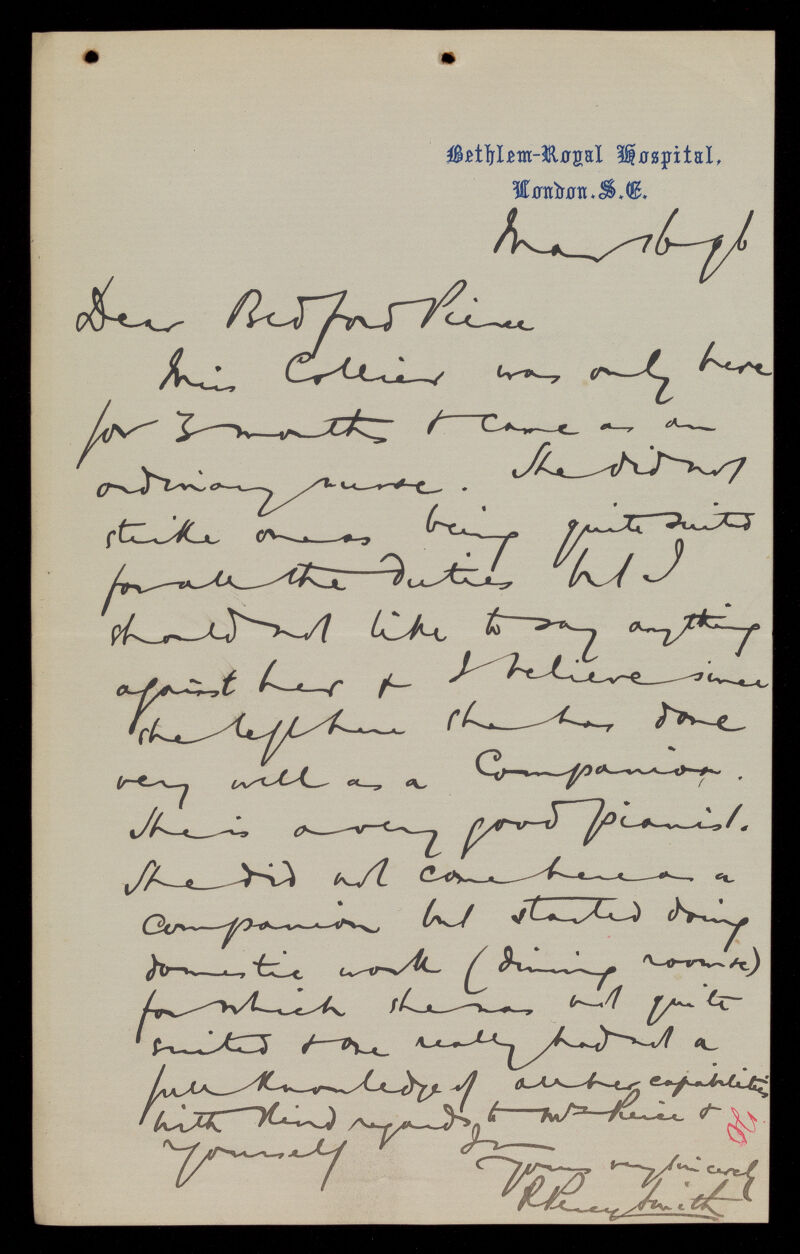 Bethlem-Royal Hospital,
London. S.E.
Mar 16 96
Dear Bedford Pierce
Miss Collier was only here
for 3 months & came as an
ordinary nurse. She did not
strike one as being quite suited
for all the duties but I
should not like to say anything
against her & I believe since
she left here she has done
very well as a Companion.
She is a very good pianist.
She did not come here as a
companion but started doing
domestic work (dining room &c)
for which she was not quite
suited & one really had not a
full knowledge of all her capabilities
With kind regards to Mrs Pierce &
yourself
Yours very sincerely
R Percy Smith